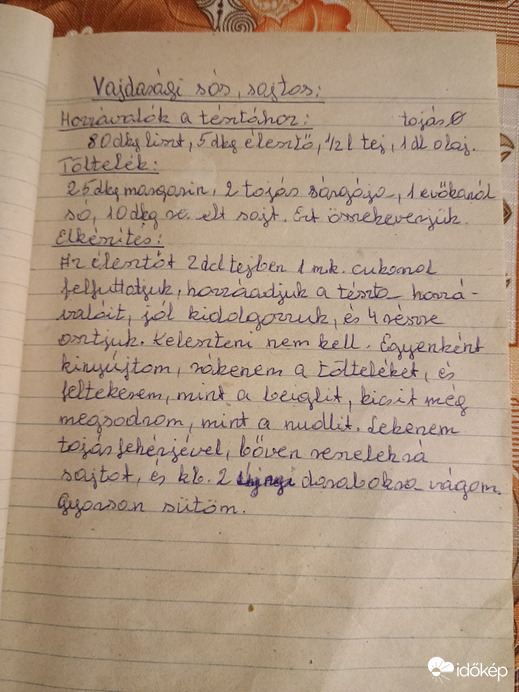 Vajdasági sós, sajtos:
Hozzávalók a tésztához: tojás Ø
80 dkg liszt, 5 dkg élesztő, 1/2 l tej, 1 dl olaj.
Töltelék:
25 dkg margarin, 2 tojás sárgája, 1 evőkanál
só, 10 dkg reszelt sajt. Ezt összekeverjük.
Elkészítés:
Az élesztőt 2 dcl tejben 1 mk. cukorral
felfuttatjuk, hozzáadjuk a tészta hozzá-
valóit, jól kidolgozzuk, és 4 részre
osztjuk. Keleszteni nem kell. Egyenként
kinyújtom, rákenem a tölteléket, és
feltekerem, mint a beiglit, kicsit még
megsodrom, mint a nudlit. Lekenem
tojásfehérjével, bőven reszelek rá
sajtot, és kb. 2 ujjnyi darabokra vágom.
Gyorsan sütöm.
időkép